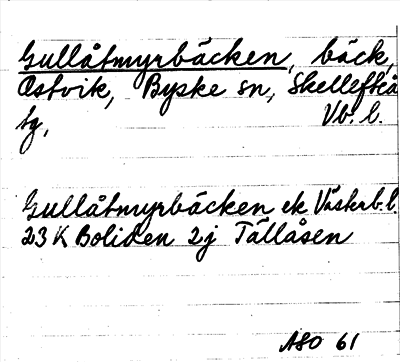 Gullåtmyrbäcken, bäck,
Ostvik, Byske sn, Skellefteå
tg, Vb. l.
Gullåtmyrbäcken ek Väskrb. l.
23 K Boliden 2j Tallåsen
ASO 61